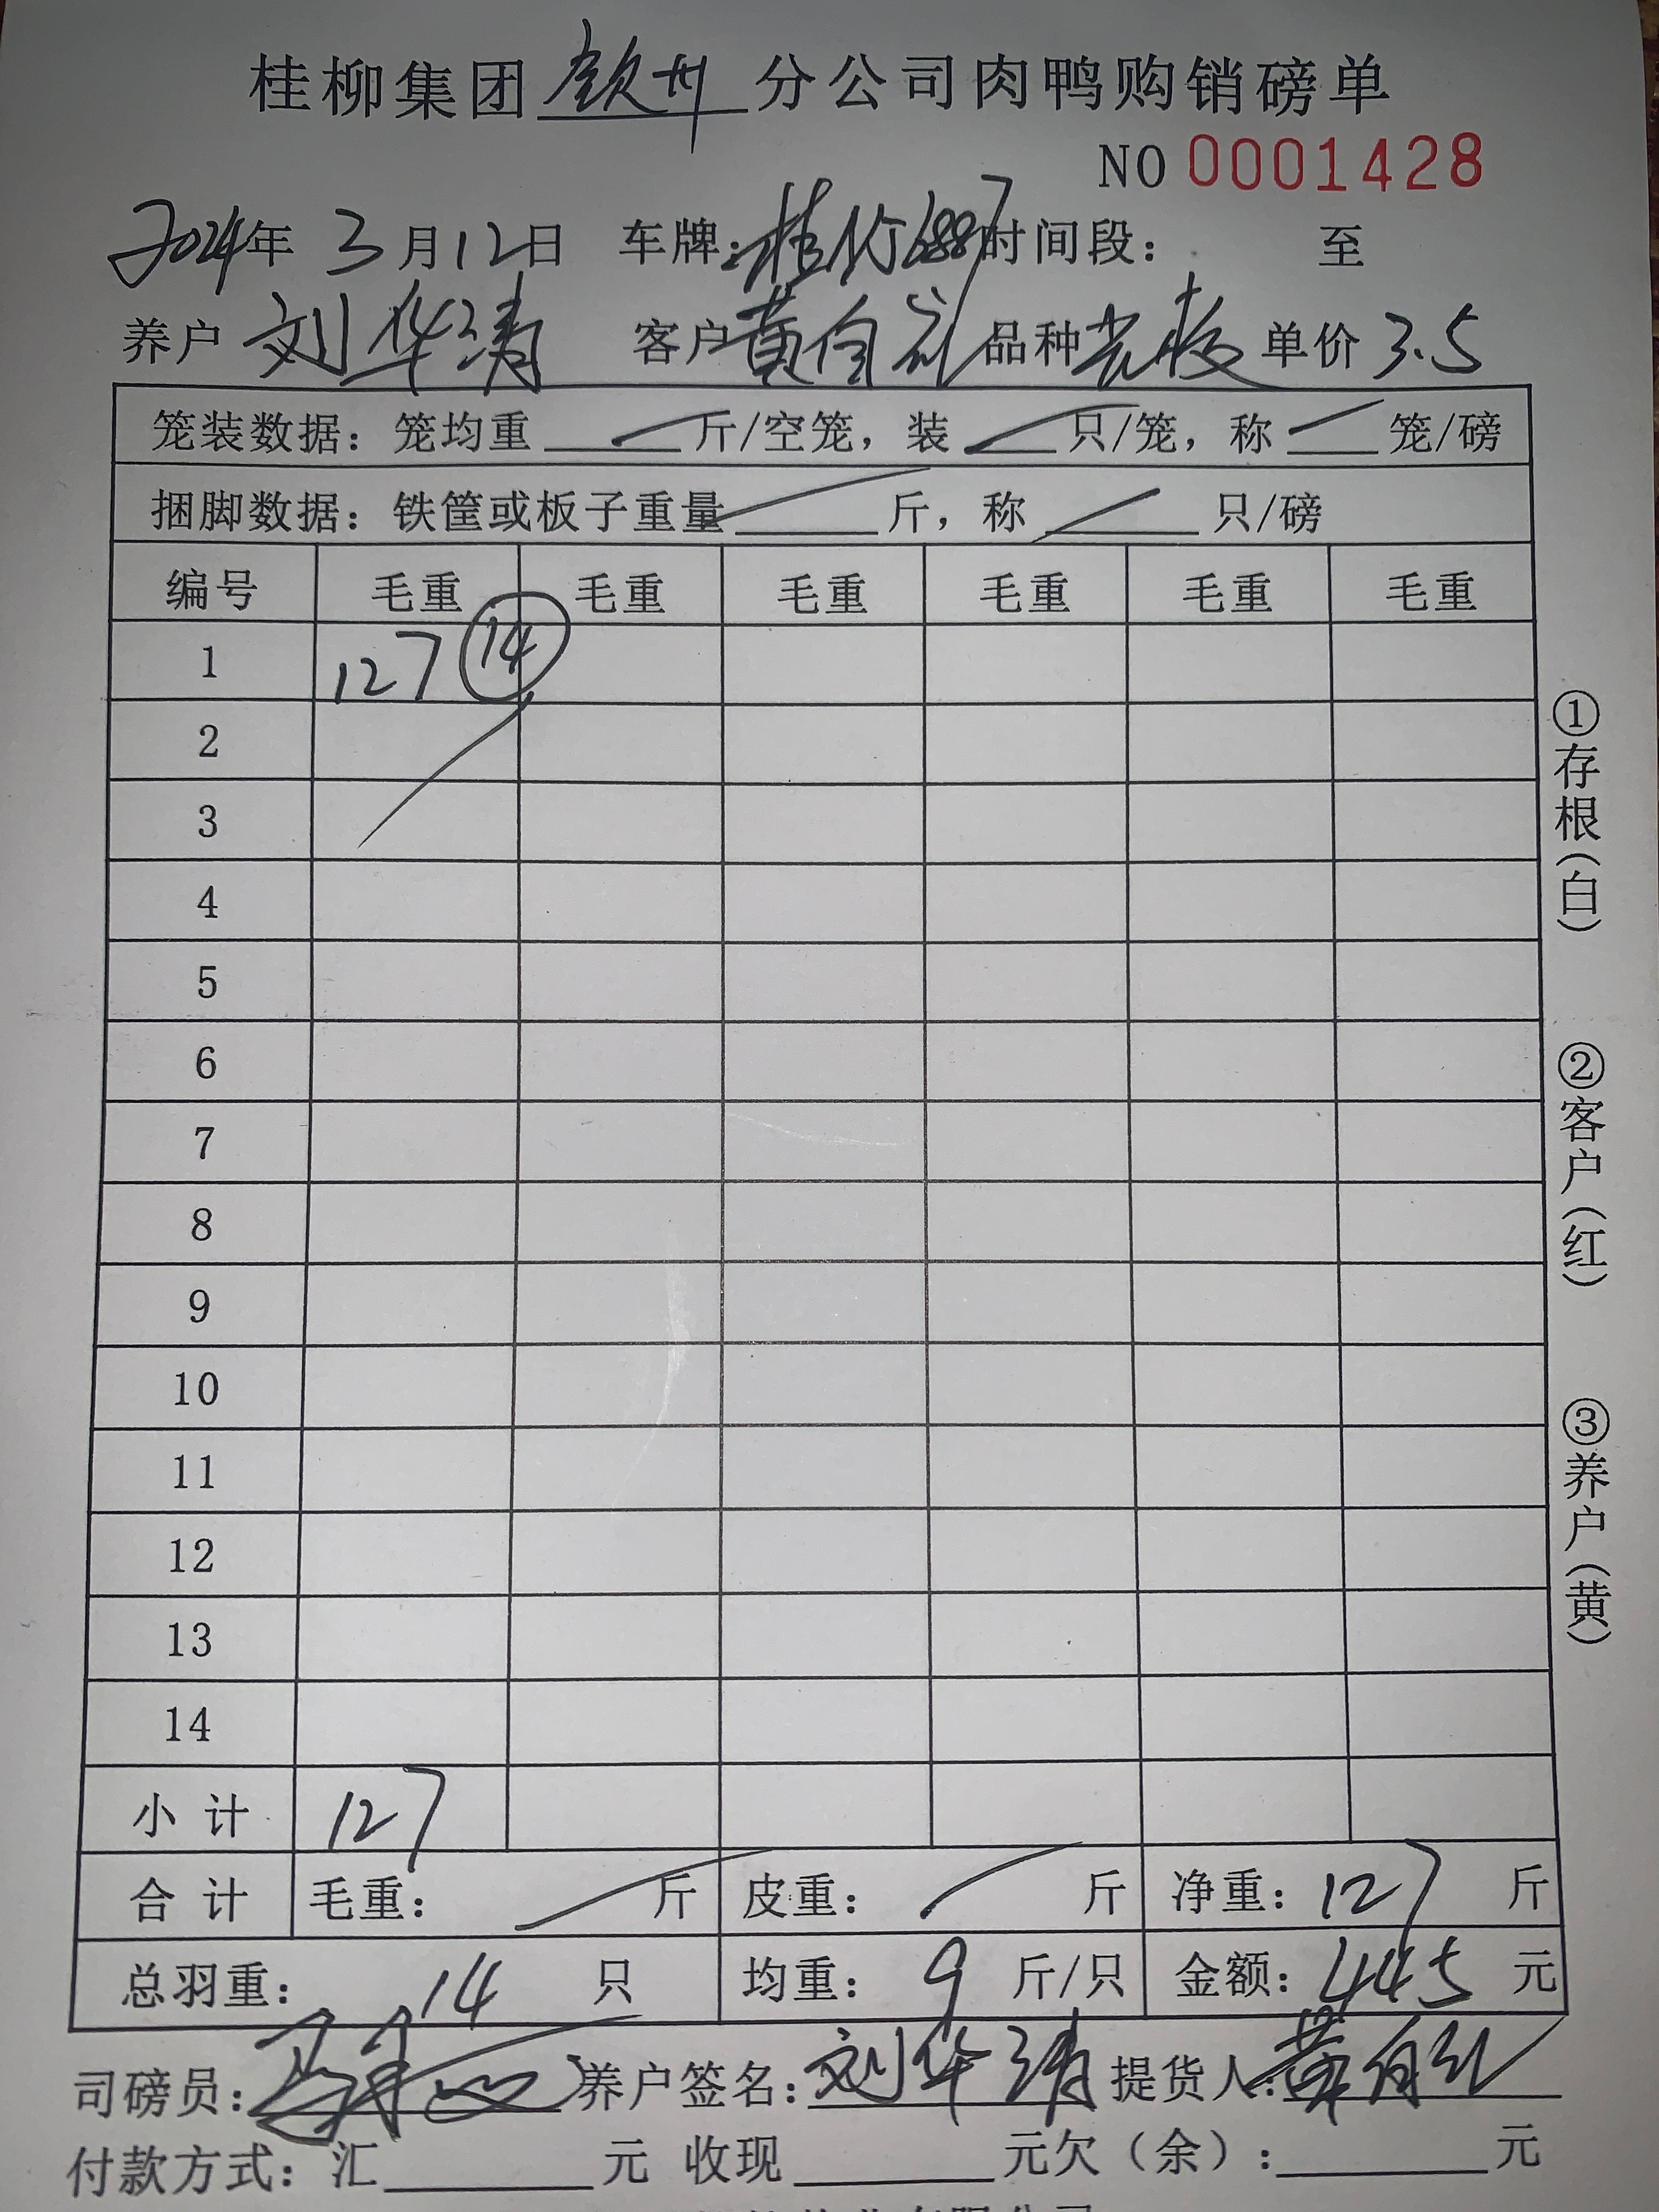 桂柳集团钦州分公司肉鸭购销磅单
NO 0001428
2024年 3月12日 车牌:桂 6887 时间段: 至
养户 刘华清 客户 黄自 品种 单价 3.5
笼装数据: 笼均重 斤/空笼, 装 只/笼, 称 笼/磅
捆脚数据: 铁筐或板子重量 斤, 称 只/磅
编号 毛重 毛重 毛重 毛重 毛重 毛重
1 127 14
2
3
4
5
6
7
8
9
10
11
12
13
14
小计 127
合计 毛重: 斤 皮重: 斤 净重: 127 斤
总羽重: 14 只 均重: 9 斤/只 金额: 445 元
司磅员: 养户签名: 刘华清 提货人: 黄自
付款方式: 汇 元 收现 元 欠(余): 元
①存根(白)
②客户(红)
③养户(黄)